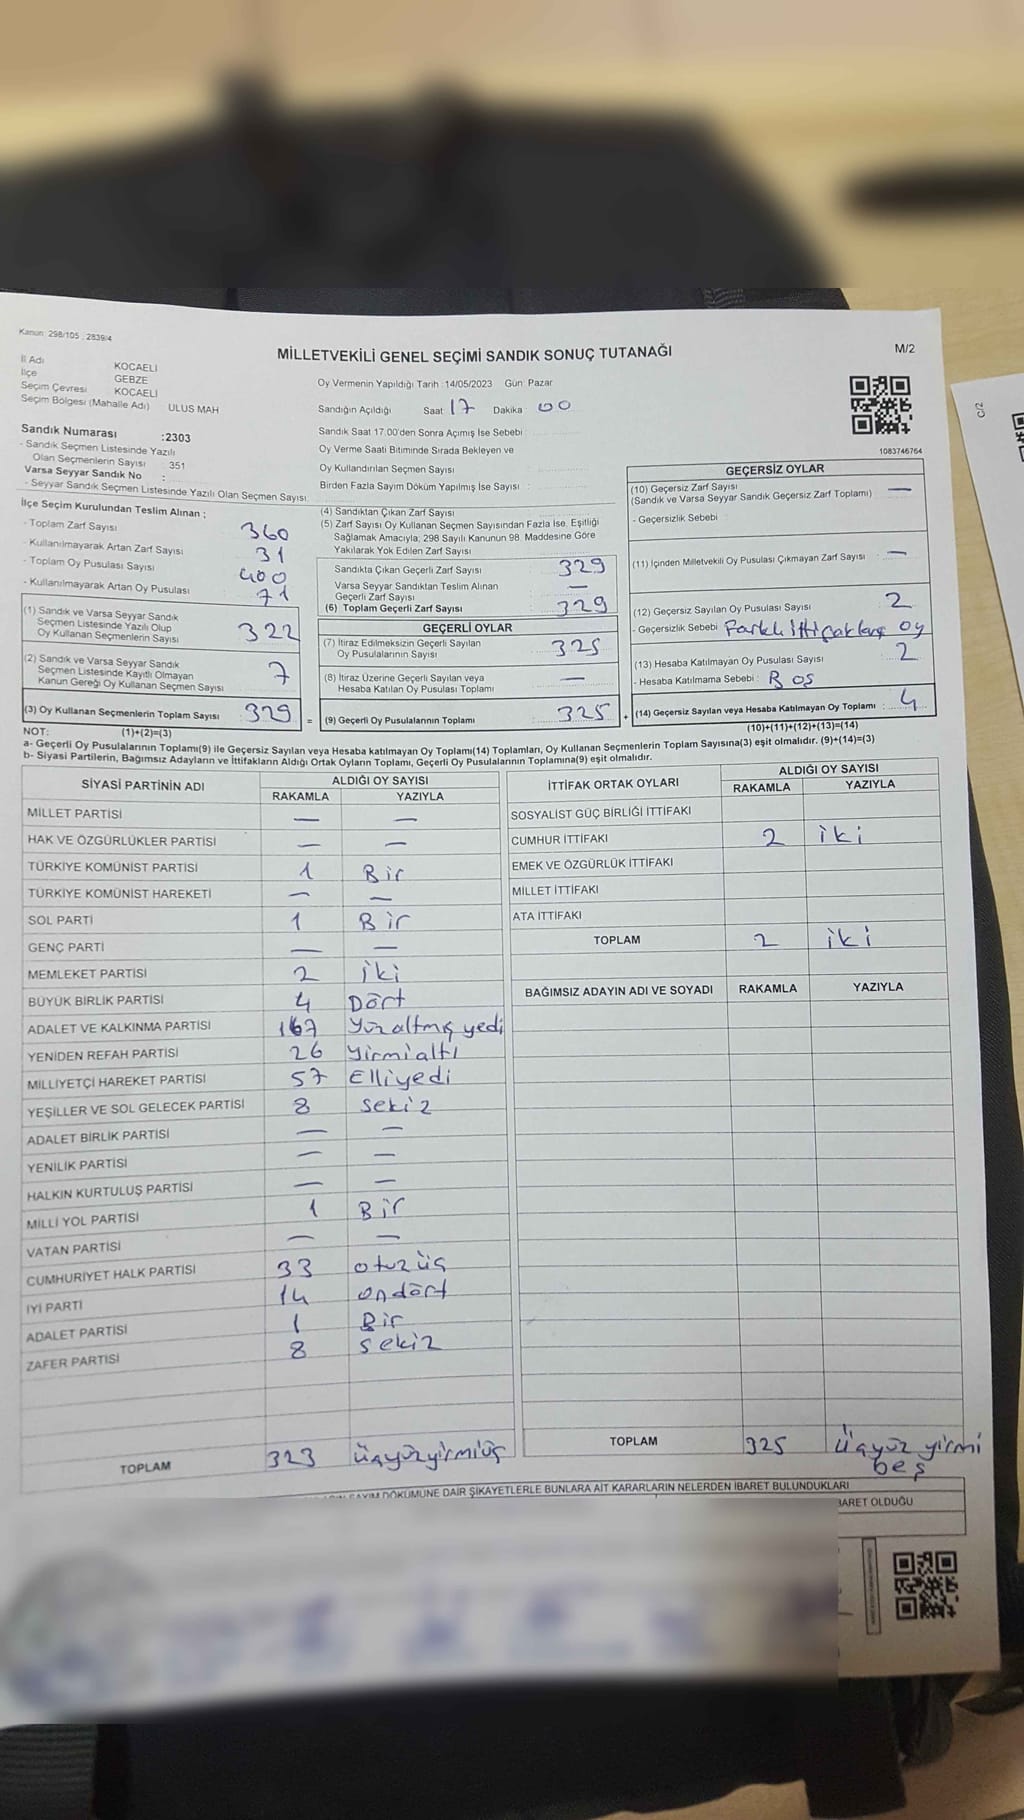 Kanun: 298/105 , 2839/4
MİLLETVEKİLİ GENEL SEÇİMİ SANDIK SONUÇ TUTANAĞI
M/2
C/2
İl Adı KOCAELİ
İlçe GEBZE
Seçim Çevresi KOCAELİ
Seçim Bölgesi (Mahalle Adı) ULUS MAH
Oy Vermenin Yapıldığı Tarih :14/05/2023 Gün: Pazar
Sandığın Açıldığı Saat 17 Dakika 00
Sandık Saat 17.00'den Sonra Açımış İse Sebebi :
Oy Verme Saati Bitiminde Sırada Bekleyen ve
Oy Kullandırılan Seçmen Sayısı
Birden Fazla Sayım Döküm Yapılmış İse Sayısı :
1083746764
Sandık Numarası :2303
- Sandık Seçmen Listesinde Yazılı
Olan Seçmenlerin Sayısı : 351
Varsa Seyyar Sandık No :
- Seyyar Sandık Seçmen Listesinde Yazılı Olan Seçmen Sayısı
İlçe Seçim Kurulundan Teslim Alınan ;
- Toplam Zarf Sayısı 360
- Kullanılmayarak Artan Zarf Sayısı 31
- Toplam Oy Pusulası Sayısı 400
- Kullanılmayarak Artan Oy Pusulası 71
(1) Sandık ve Varsa Seyyar Sandık
Seçmen Listesinde Yazılı Olup
Oy Kullanan Seçmenlerin Sayısı 322
(2) Sandık ve Varsa Seyyar Sandık
Seçmen Listesinde Kayıtlı Olmayan
Kanun Gereği Oy Kullanan Seçmen Sayısı 7
(3) Oy Kullanan Seçmenlerin Toplam Sayısı 329 =
(4) Sandıktan Çıkan Zarf Sayısı
(5) Zarf Sayısı Oy Kullanan Seçmen Sayısından Fazla İse, Eşitliği
Sağlamak Amacıyla, 298 Sayılı Kanunun 98. Maddesine Göre
Yakılarak Yok Edilen Zarf Sayısı
Sandıkta Çıkan Geçerli Zarf Sayısı 329
Varsa Seyyar Sandıktan Teslim Alınan
Geçerli Zarf Sayısı —
(6) Toplam Geçerli Zarf Sayısı 329
GEÇERLİ OYLAR
(7) İtiraz Edilmeksizin Geçerli Sayılan
Oy Pusulalarının Sayısı 325
(8) İtiraz Üzerine Geçerli Sayılan veya
Hesaba Katılan Oy Pusulası Toplamı —
(9) Geçerli Oy Pusulalarının Toplamı : 325 +
GEÇERSİZ OYLAR
(10) Geçersiz Zarf Sayısı : —
(Sandık ve Varsa Seyyar Sandık Geçersiz Zarf Toplamı)
- Geçersizlik Sebebi
(11) İçinden Milletvekili Oy Pusulası Çıkmayan Zarf Sayısı : —
(12) Geçersiz Sayılan Oy Pusulası Sayısı 2
- Geçersizlik Sebebi Farklı ittifaklara oy
(13) Hesaba Katılmayan Oy Pusulası Sayısı 2
- Hesaba Katılmama Sebebi : Boş
(14) Geçersiz Sayılan veya Hesaba Katılmayan Oy Toplamı : 4
NOT: (1)+(2)=(3)
(10)+(11)+(12)+(13)=(14)
a- Geçerli Oy Pusulalarının Toplamı(9) ile Geçersiz Sayılan veya Hesaba katılmayan Oy Toplamı(14) Toplamları, Oy Kullanan Seçmenlerin Toplam Sayısına(3) eşit olmalıdır. (9)+(14)=(3)
b- Siyasi Partilerin, Bağımsız Adayların ve İttifakların Aldığı Ortak Oyların Toplamı, Geçerli Oy Pusulalarının Toplamına(9) eşit olmalıdır.
SİYASİ PARTİNİN ADI ALDIĞI OY SAYISI
RAKAMLA YAZIYLA
MİLLET PARTİSİ — —
HAK VE ÖZGÜRLÜKLER PARTİSİ — —
TÜRKİYE KOMÜNİST PARTİSİ 1 Bir
TÜRKİYE KOMÜNİST HAREKETİ — —
SOL PARTİ 1 Bir
GENÇ PARTİ — —
MEMLEKET PARTİSİ 2 iki
BÜYÜK BİRLİK PARTİSİ 4 Dört
ADALET VE KALKINMA PARTİSİ 167 Yüzaltmış yedi
YENİDEN REFAH PARTİSİ 26 Yirmialtı
MİLLİYETÇİ HAREKET PARTİSİ 57 Elliyedi
YEŞİLLER VE SOL GELECEK PARTİSİ 8 sekiz
ADALET BİRLİK PARTİSİ — —
YENİLİK PARTİSİ — —
HALKIN KURTULUŞ PARTİSİ — —
MİLLİ YOL PARTİSİ 1 Bir
VATAN PARTİSİ — —
CUMHURİYET HALK PARTİSİ 33 otuzüç
İYİ PARTİ 14 ondört
ADALET PARTİSİ 1 Bir
ZAFER PARTİSİ 8 sekiz
TOPLAM 323 üçyüzyirmiüç
İTTİFAK ORTAK OYLARI ALDIĞI OY SAYISI
RAKAMLA YAZIYLA
SOSYALİST GÜÇ BİRLİĞİ İTTİFAKI
CUMHUR İTTİFAKI 2 iki
EMEK VE ÖZGÜRLÜK İTTİFAKI
MİLLET İTTİFAKI
ATA İTTİFAKI
TOPLAM 2 iki
BAĞIMSIZ ADAYIN ADI VE SOYADI RAKAMLA YAZIYLA
TOPLAM 325 üçyüz yirmi
beş
SAYIM DÖKÜMÜNE DAİR ŞİKAYETLERLE BUNLARA AİT KARARLARIN NELERDEN İBARET BULUNDUKLARI
BARET OLDUĞU